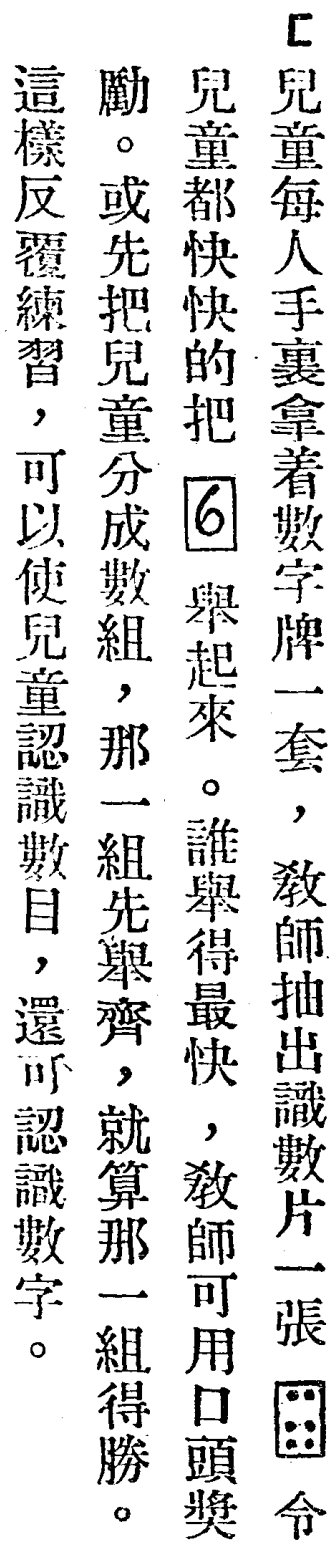 匚兒童每人手裏拿着數字牌一套，教師抽出識數片一張 ⚅ 令
兒童都快快的把 6 舉起來。誰舉得最快，教師可用口頭獎
勵。或先把兒童分成數組，那一組先舉齊，就算那一組得勝。
這樣反覆練習，可以使兒童認識數目，還可認識數字。